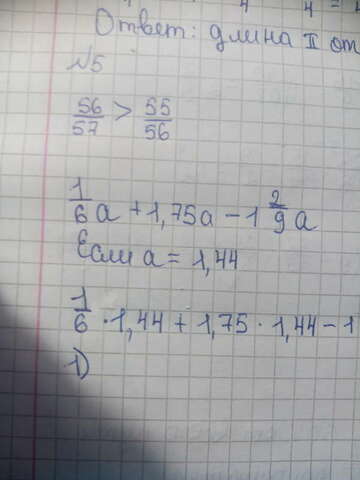 Ответ: длина II от
№5
56/57 > 55/56
1/6 a + 1,75a - 1 2/9 a
Если a = 1,44
1/6 · 1,44 + 1,75 · 1,44 - 1
1)